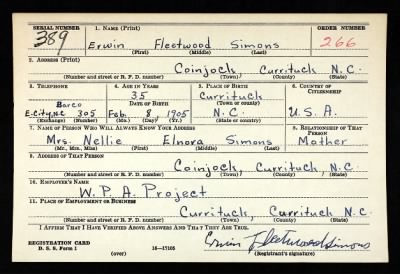 SERIAL NUMBER 1. NAME (Print) ORDER NUMBER
389 Erwin Fleetwood Simons 266
(First) (Middle) (Last)
2. ADDRESS (Print)
Coinjock Currituck N.C.
(Number and street or R. F. D. number) (Town) (County) (State)
3. TELEPHONE 4. AGE IN YEARS 5. PLACE OF BIRTH 6. COUNTRY OF CITIZENSHIP
35 Currituck
Barco DATE OF BIRTH (Town or county)
E.City, N.C. 305 Feb. 8 1905 N.C. U.S.A.
(Exchange) (Number) (Mo.) (Day) (Yr.) (State or country)
7. NAME OF PERSON WHO WILL ALWAYS KNOW YOUR ADDRESS 8. RELATIONSHIP OF THAT PERSON
Mrs. Nellie Elnora Simons Mother
(Mr., Mrs., Miss) (First) (Middle) (Last)
9. ADDRESS OF THAT PERSON
Coinjock Currituck N.C.
(Number and street or R. F. D. number) (Town) (County) (State)
10. EMPLOYER'S NAME
W.P.A. Project
11. PLACE OF EMPLOYMENT OR BUSINESS
Currituck, Currituck N.C.
(Number and street or R. F. D. number) (Town) (County) (State)
I AFFIRM THAT I HAVE VERIFIED ABOVE ANSWERS AND THAT THEY ARE TRUE.
REGISTRATION CARD
D. S. S. Form 1 16-17105 Erwin Fleetwood Simons
(over) (Registrant's signature)